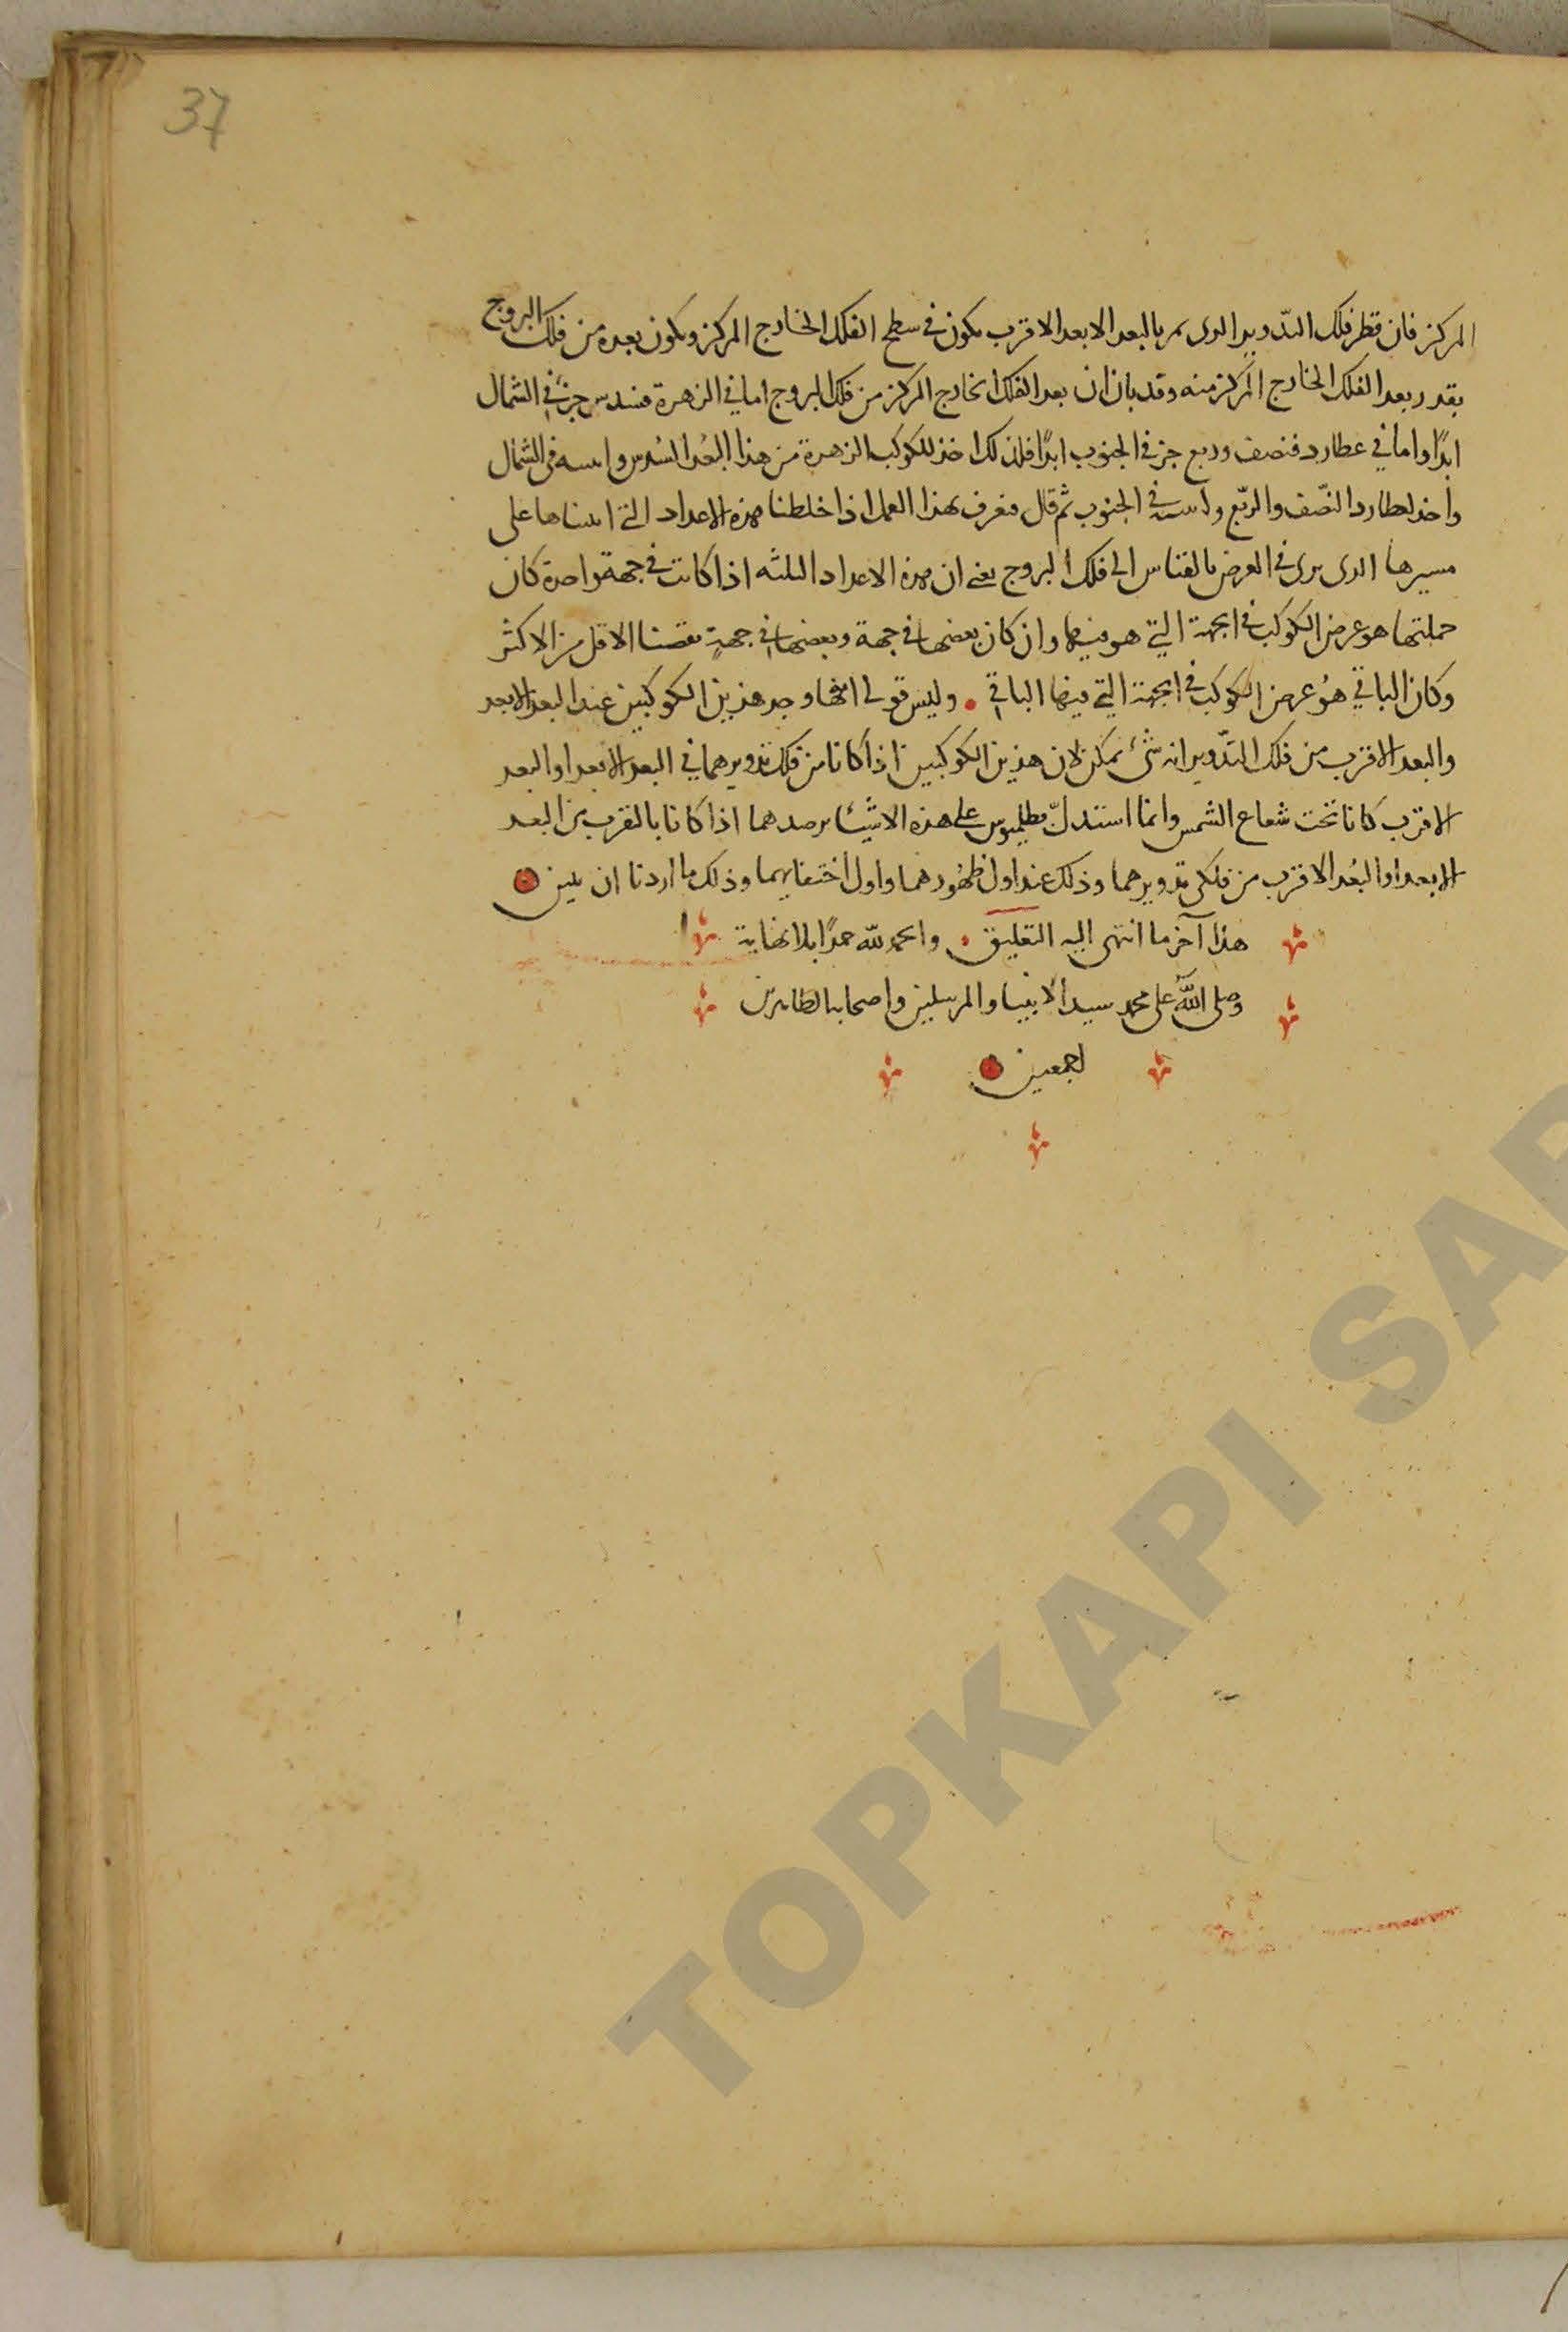 37
المركز فان قطر فلك التدوير الدى يمر بالبعد الابعد الاقرب يكون فى سطح الفلك الخارج المركز ويكون بعده من فلك البروج
بقدر بعد الفلك الخارج المركز منه وقد بان ان بعد الفلك الخارج المركز من فلك البروج اما فى الزهرة فسدس جزء فى الشمال
ابدًا واما في عطارد فنصف وربع جزء فى الجنوب ابدًا فلذلك اخذ للكوكب الزهرة من هذا البُعد السُدس واثبته فى الشمال
واخذ لعطارد النصّف والربّع واثبته فى الجنوب ثم قال فنعرف بهذا العمل اذا خلطنا هذه الاعداد التى اثبتناها على
مسيرها الدى يرى فى العرض بالقياس الى فلك البروج يعنى ان هذه الاعداد الثلثه اذا كانت فى جهة واحدة كان
جملتها هو عرض الكوكب فى الجهة التي هو فيها وان كان بعضها فى جهة وبعضها فى جهةٍ نقصنا الاقل من الاكثر
وكان الباقي هُو عرض الكوكب فى الجهة التي فيها الباقي . وليس قولى انما وجد هذين الكوكبين عند البعد الابعد
والبعد الاقرب من فلك التدّوير انه شىء يمكن لان هذين الكوكبين اذا كانا من فلك تدويرهما فى البعد الابعد او البعد
الاقرب كانا تحت شعاع الشمس وانما استدلّ بطلميوس على هذه الاشيا برصدهما اذا كانا بالقرب من البعد
الابعد او البُعد الاقرب من فلكى تدويرهما وذلك عند اول ظهُورهما واول اختفايهما وذلك ما اردنا ان نبين
هذا آخر ما انتهى اليه التعليق . والحمد للّه حمدًا بلا نهاية
وصلى اللّه على محمد سيد الانبيا والمرسلين واصحابه الطاهرين
اجمعين
TOPKAPI SAR